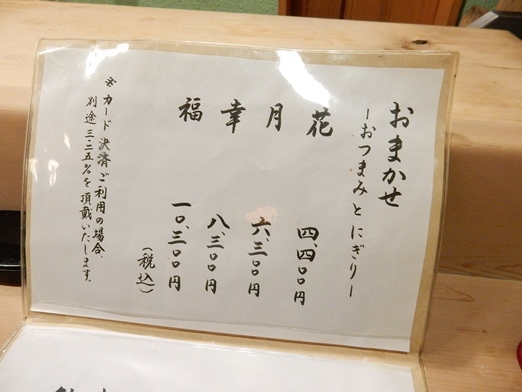 おまかせ
ーおつまみとにぎりー
花 四、四〇〇円
月 六、三〇〇円
幸 八、三〇〇円
福 一〇、三〇〇円
(税込)
※カード決済ご利用の場合、
別途三.二五%を頂戴いたします。